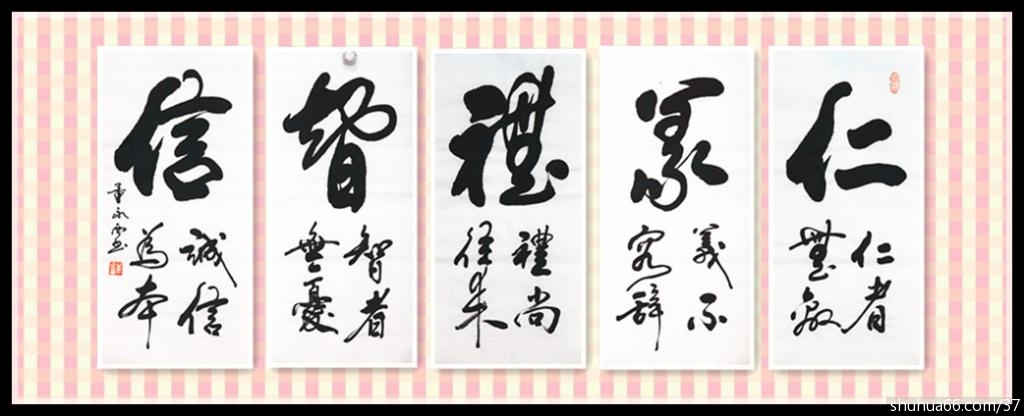 仁
仁者
無敵
義
義不
容辭
禮
禮尚
往来
智
智者
無憂
信
誠信
為本
shuhua66.com/57